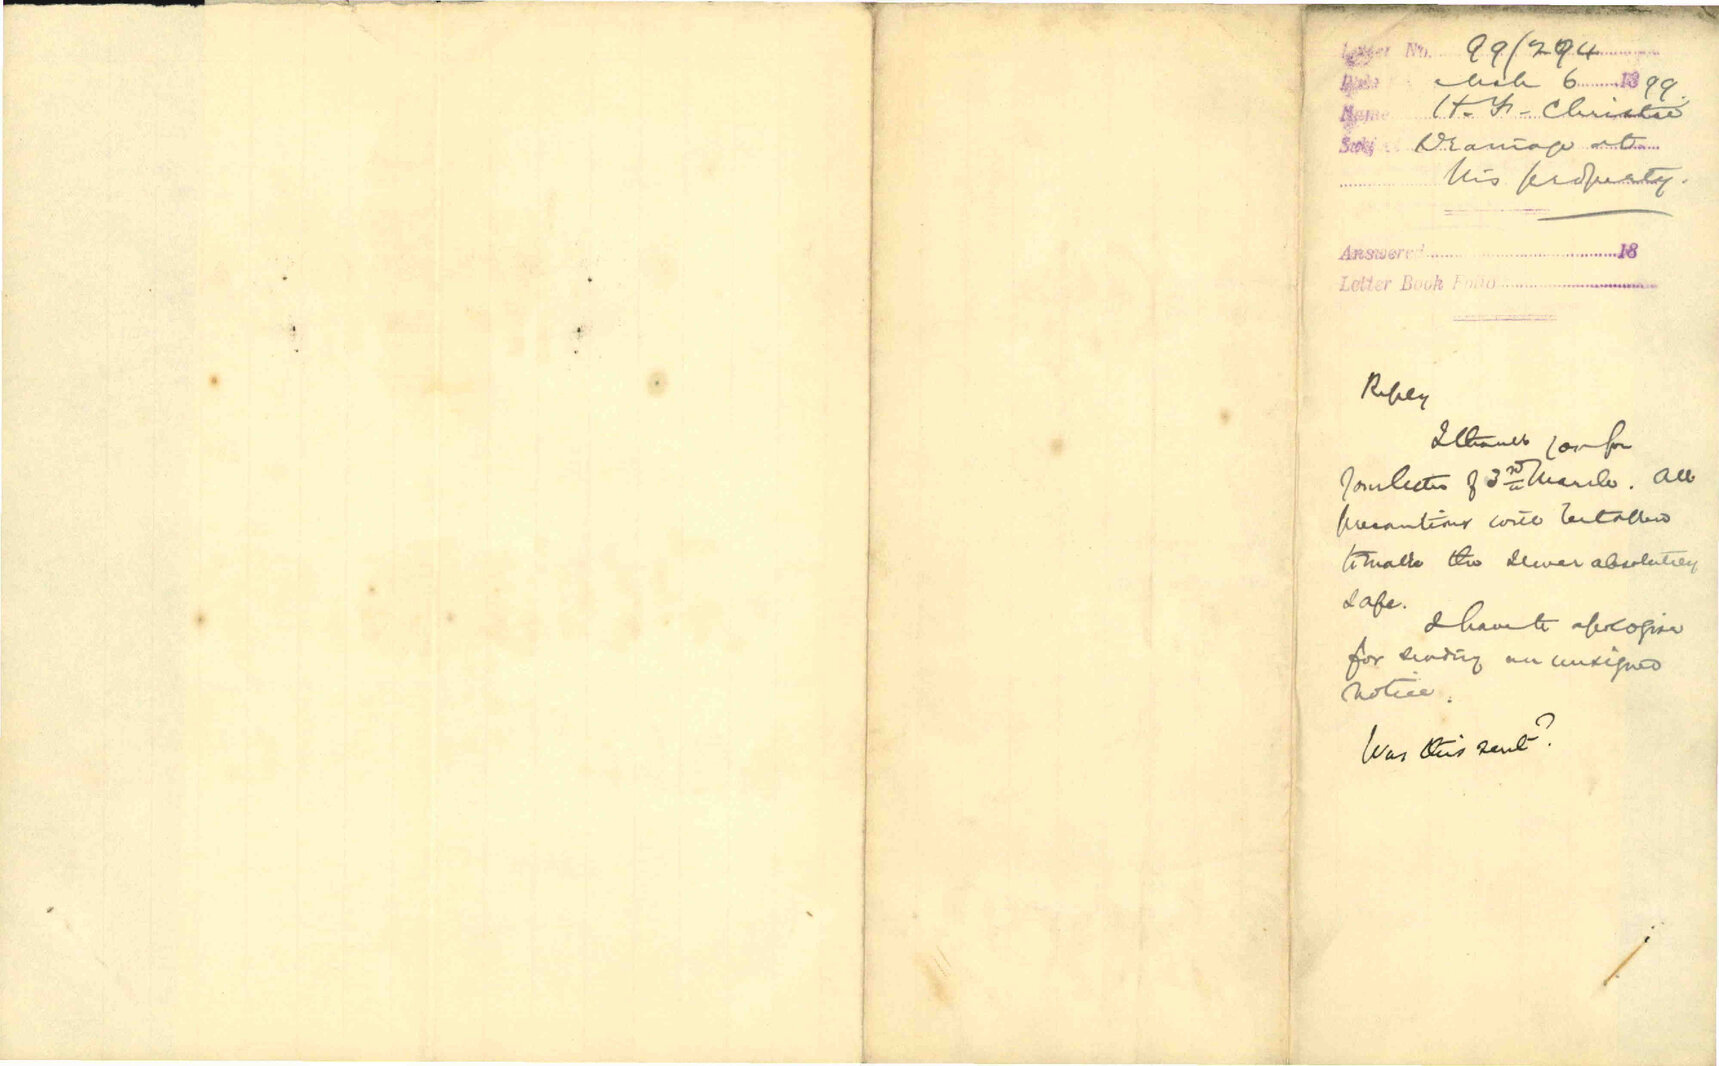 Letter No. 99/294
Date Mch 6 1899.
Name H. F. Christie
Subj Drainage at
his property.
Answered 18
Letter Book Folio
Reply
I thank you for
your letter of 3rd March. All
precautions will be taken
to make the sewer absolutely
safe.
I have to apologise
for sending an unsigned
notice.
Was this sent?